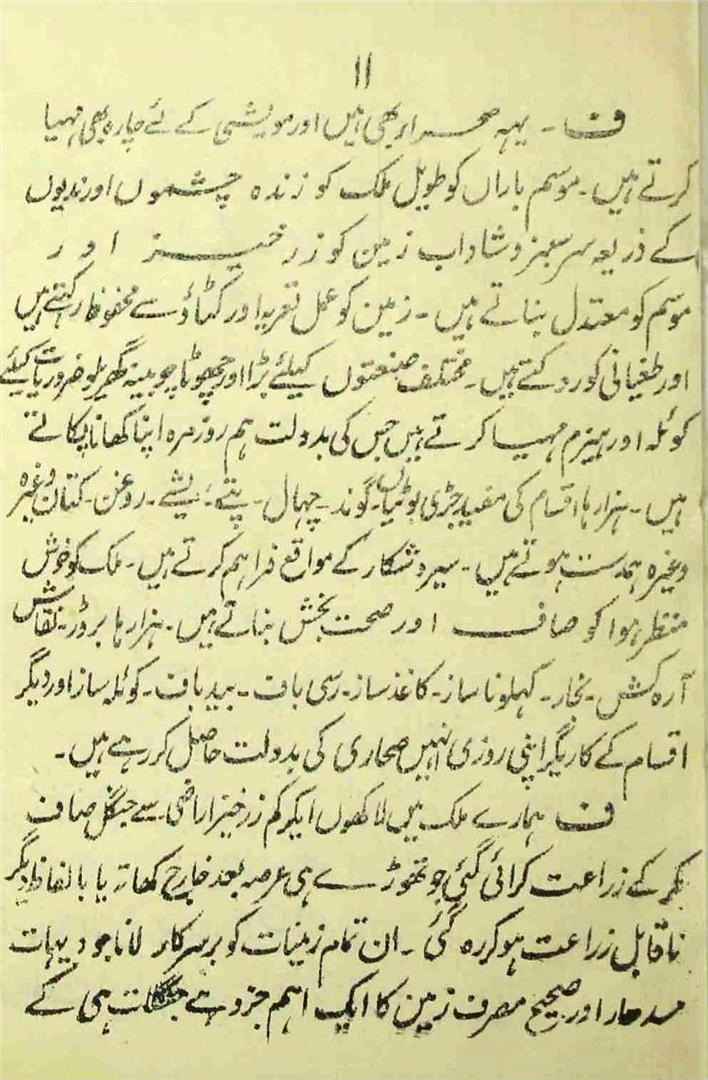 ۱۱
ف ۔ یہہ صحراء بھی ہیں اور مویشی کے لئے چارہ بھی مہیا
کرتے ہیں۔ موسم باراں کو طویل ملک کو زندہ چشموں اور ندیوں
کے ذریعہ سرسبز و شاداب زمین کو زرخیز اور
موسم کو معتدل بناتے ہیں ۔ زمین کو عمل تعریہ اور کٹاؤ سے محفوظ رکہتے ہیں
اور طغیانی کو روکتے ہیں۔ مختلف صنعتوں کیلئے بڑا اور چھوٹا چوبینہ گھریلو ضروریات کیلئے
کوئلہ اور ہیزم مہیا کرتے ہیں جس کی بدولت ہم روزمرہ اپنا کھانا پکاتے
ہیں ۔ ہزارہا اقسام کی مفید جڑی بوٹیاں۔ گوند ۔ چہال ۔ پتے ۔ ریشے ۔ روغن ۔ کتان وغیرہ
وغیرہ ہمدست ہوتے ہیں ۔ سیر و شکار کے مواقع فراہم کرتے ہیں ۔ ملک کو خوش
منظر ہوا کو صاف اور صحت بخش بناتے ہیں ۔ ہزارہا بروڑ ۔ نقاش
آرہ کش ۔ نجار ۔ کہلونا ساز ۔ کاغذ ساز ۔ رسی باف ۔ بید باف ۔ کوئلہ ساز اور دیگر
اقسام کے کاریگر اپنی روزی انہیں صحاری کی بدولت حاصل کر رہے ہیں ۔
ف ہمارے ملک میں لاکھوں ایکر کم زرخیز اراضی سے جنگل صاف
کر کے زراعت کرائی گئی جو تھوڑے ہی عرصہ بعد خارج کھاتہ یا بالفاظ دیگر
ناقابل زراعت ہو کر رہ گئی ۔ ان تمام زمینات کو برسر کار لانا جو دیہات
سدھار اور صحیح مصرف زمین کا ایک اہم جزو ہے جنگلات ہی کے